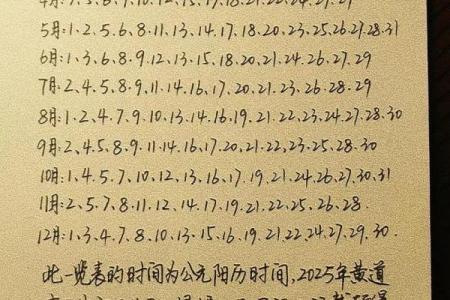 5月:1、2、5、6、8、11、13、14、17、18、20、23、25、26、27、28、31
6月:1、3、6、8、9、12、13、15、18、20、21、24、26、27、29
7月:2、4、5、8、9、11、14、16、17、20、21、23、26、28、29
8月:1、2、4、7、9、10、13、14、16、19、21、22、23、24、27、28、30
9月:2、4、5、8、9、11、14、16、17、20、21、22、23、25、28、30
10月:1、4、5、7、10、12、13、16、17、19、21、24、26、27、30、31
11月:2、5、7、8、11、12、14、17、19、21、22、25、26、28、
12月:1、3、4、7、8、10、13、15、16、19、21、22、24、27、29、30、
此一览表的时间为公元阳历时间,2025年黄道